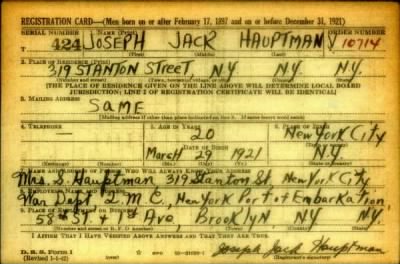 REGISTRATION CARD—(Men born on or after February 17, 1897 and on or before December 31, 1921)
SERIAL NUMBER 1. NAME (Print) ORDER NUMBER
424 JOSEPH JACK HAUPTMAN V10714
(First) (Middle) (Last)
2. PLACE OF RESIDENCE (Print)
319 STANTON STREET N.Y. N.Y. N.Y.
(Number and street) (Town, township, village, or city) (County) (State)
[THE PLACE OF RESIDENCE GIVEN ON THE LINE ABOVE WILL DETERMINE LOCAL BOARD
JURISDICTION; LINE 2 OF REGISTRATION CERTIFICATE WILL BE IDENTICAL]
3. MAILING ADDRESS
SAME
[Mailing address if other than place indicated on line 2. If same insert word same]
4. TELEPHONE 5. AGE IN YEARS 6. PLACE OF BIRTH
20 New York City
DATE OF BIRTH (Town or county)
March 29 1921 N.Y.
(Exchange) (Number) (Mo.) (Day) (Yr.) (State or country)
7. NAME AND ADDRESS OF PERSON WHO WILL ALWAYS KNOW YOUR ADDRESS
Mrs. S. Hauptman 319 Stanton St. New York City
8. EMPLOYER'S NAME AND ADDRESS
War Dept. Q.M.C., New York Port of Embarkation
9. PLACE OF EMPLOYMENT OR BUSINESS
58th St. & 1st Ave., Brooklyn N.Y. N.Y.
(Number and street or R. F. D. number) (Town) (County) (State)
I AFFIRM THAT I HAVE VERIFIED ABOVE ANSWERS AND THAT THEY ARE TRUE.
D. S. S. FORM 1
(Revised 1-1-42) (over)
Joseph Jack Hauptman